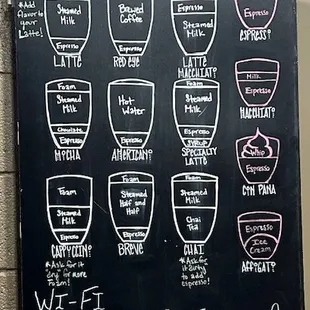 *Add
flavor to
your
Latte!
Steamed
Milk
Espresso
LATTE
Brewed
Coffee
Espresso
RED EYE
Espresso
Steamed
Milk
LATTE
MACCHIATO
Espresso
ESPRESSO
Foam
Steamed
Milk
Chocolate
Espresso
MOCHA
Hot
Water
Espresso
AMERICANO
Foam
Steamed
Milk
Espresso
SYRUP
SPECIALTY
LATTE
Milk
Espresso
MACCHIATO
Whip
Espresso
CON PANA
Foam
Steamed
Milk
Espresso
CAPPUCCINO
*Ask for it
"dry" for more
Foam!
Foam
Steamed
Half and
Half
Espresso
BREVE
Foam
Steamed
Milk
Chai
Tea
CHAI
*Ask for it
dirty to
add
espresso!
Espresso
Ice
Cream
AFFOGATO
WI-FI